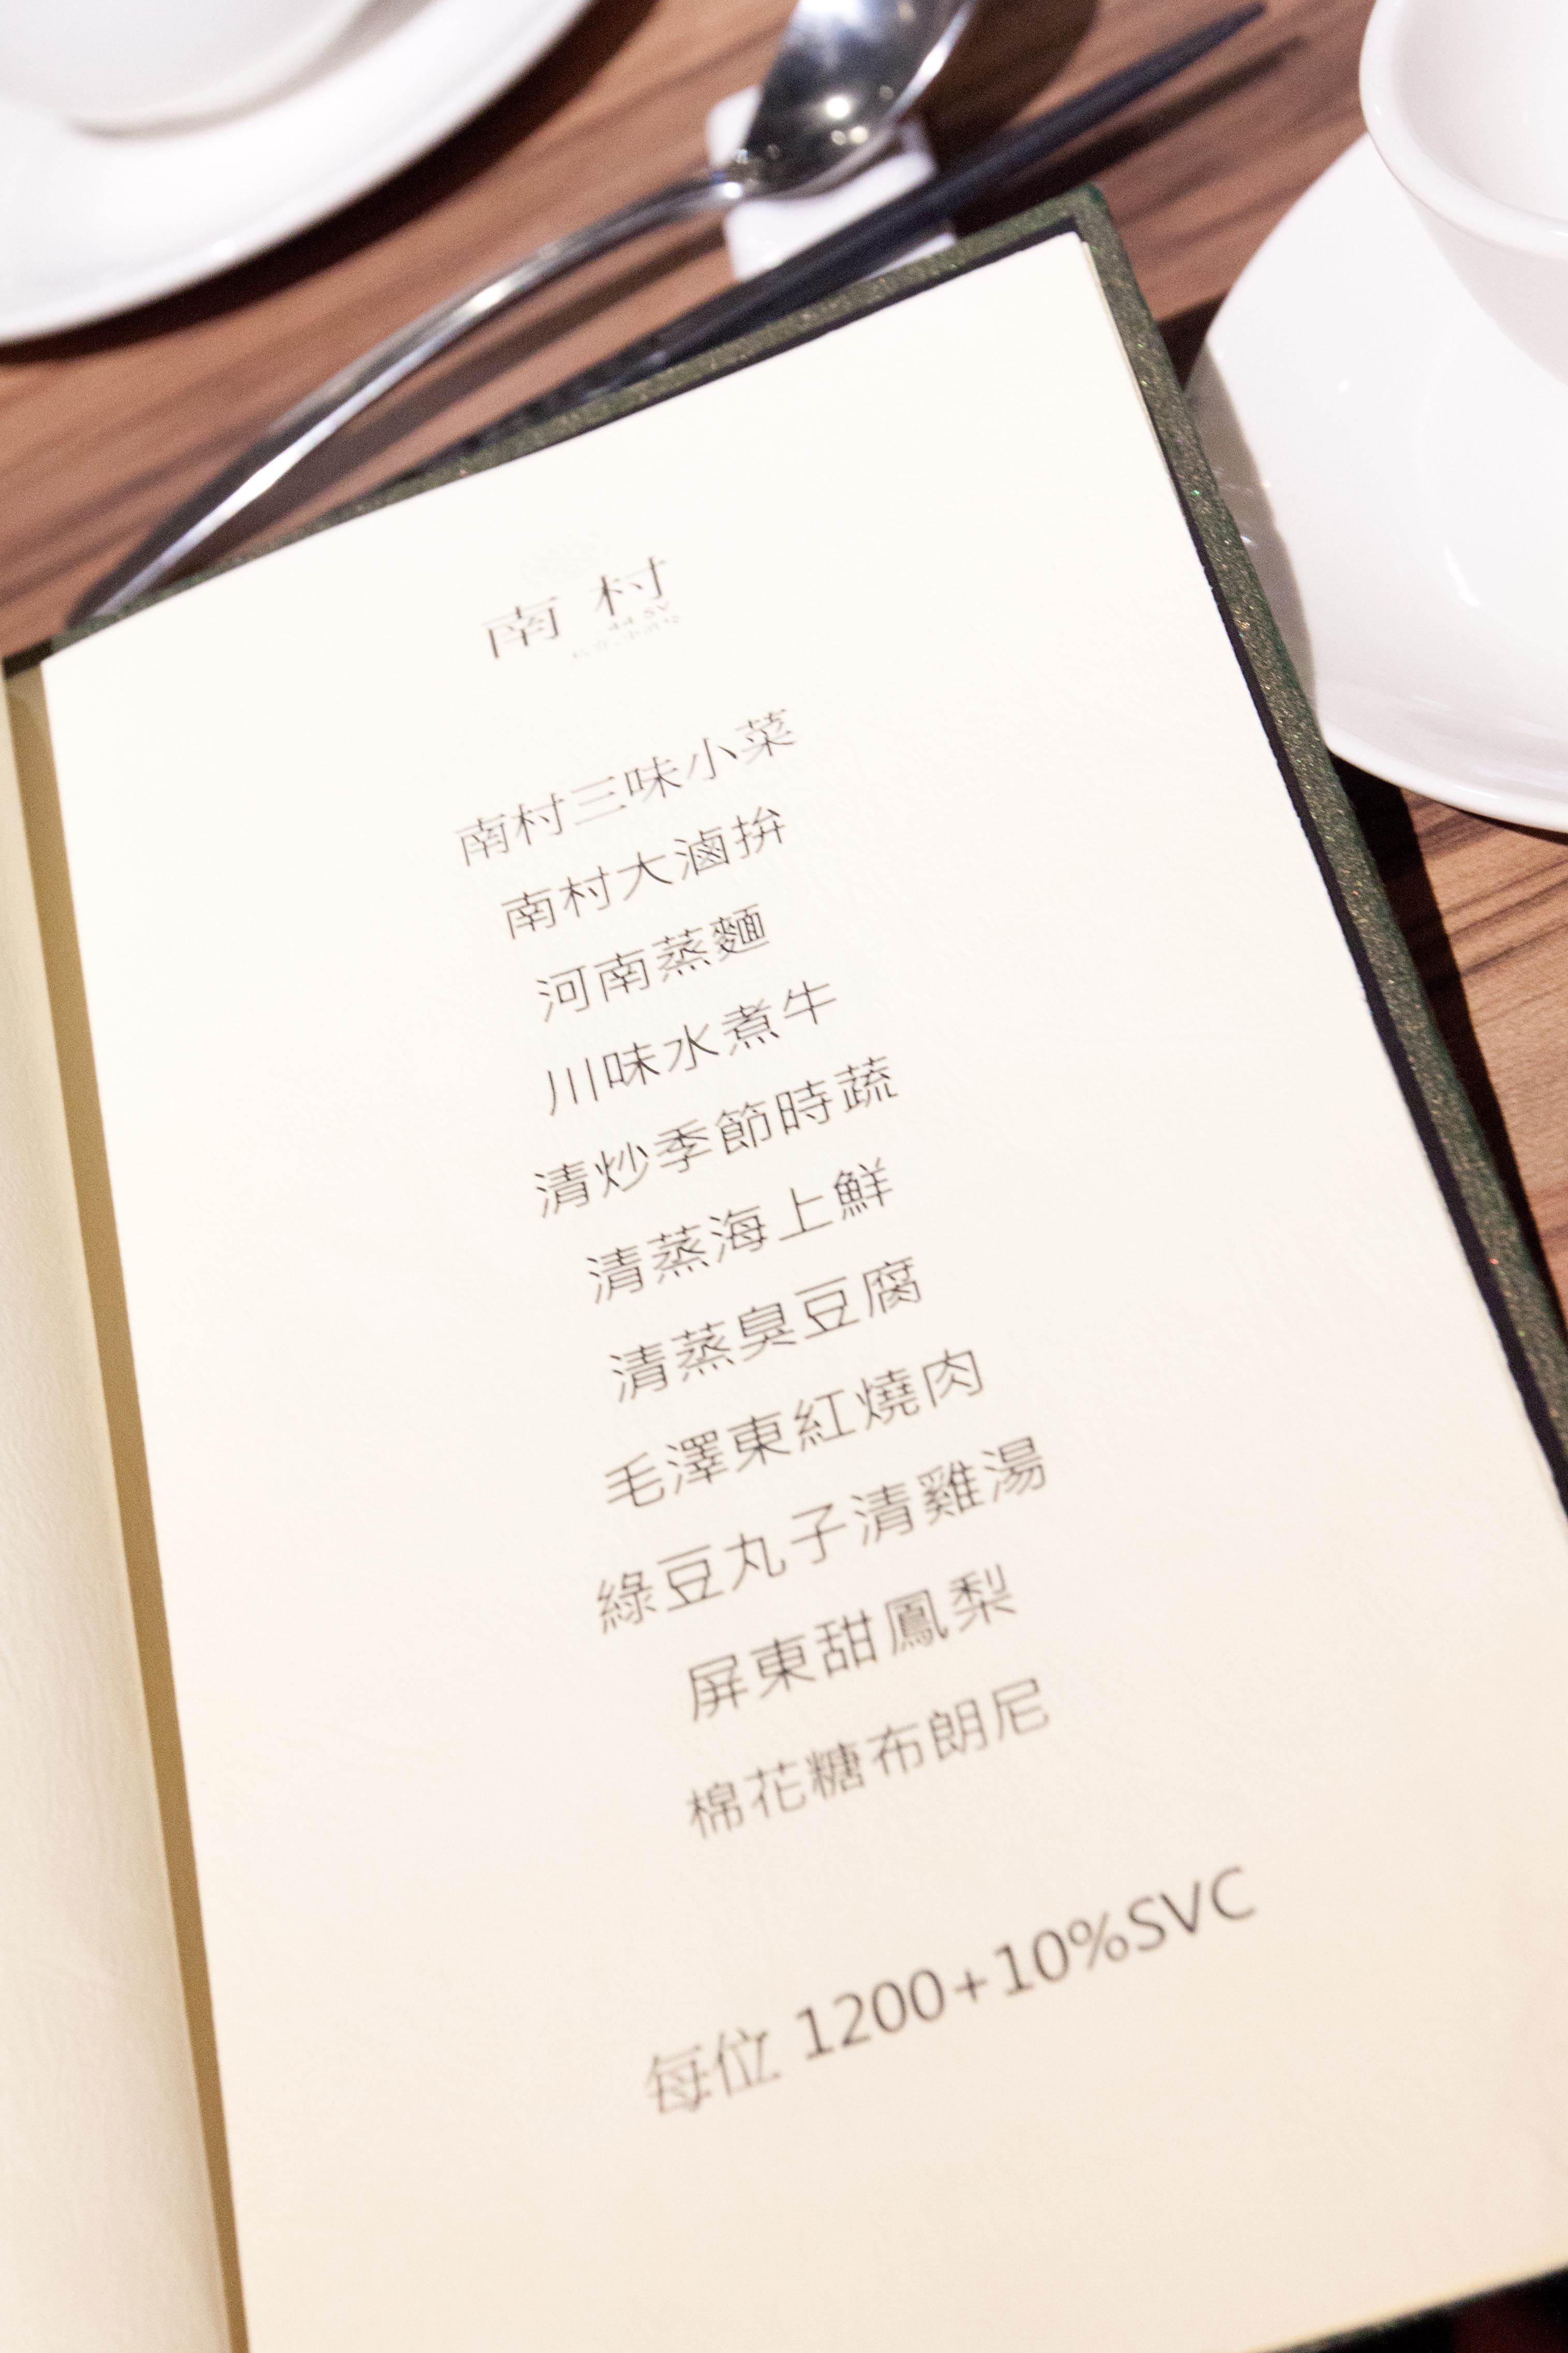 南村
44 SV
南村三味小菜
南村大滷拚
河南蒸麵
川味水煮牛
清炒季節時蔬
清蒸海上鮮
清蒸臭豆腐
毛澤東紅燒肉
綠豆丸子清雞湯
屏東甜鳳梨
棉花糖布朗尼
每位 1200+10%SVC